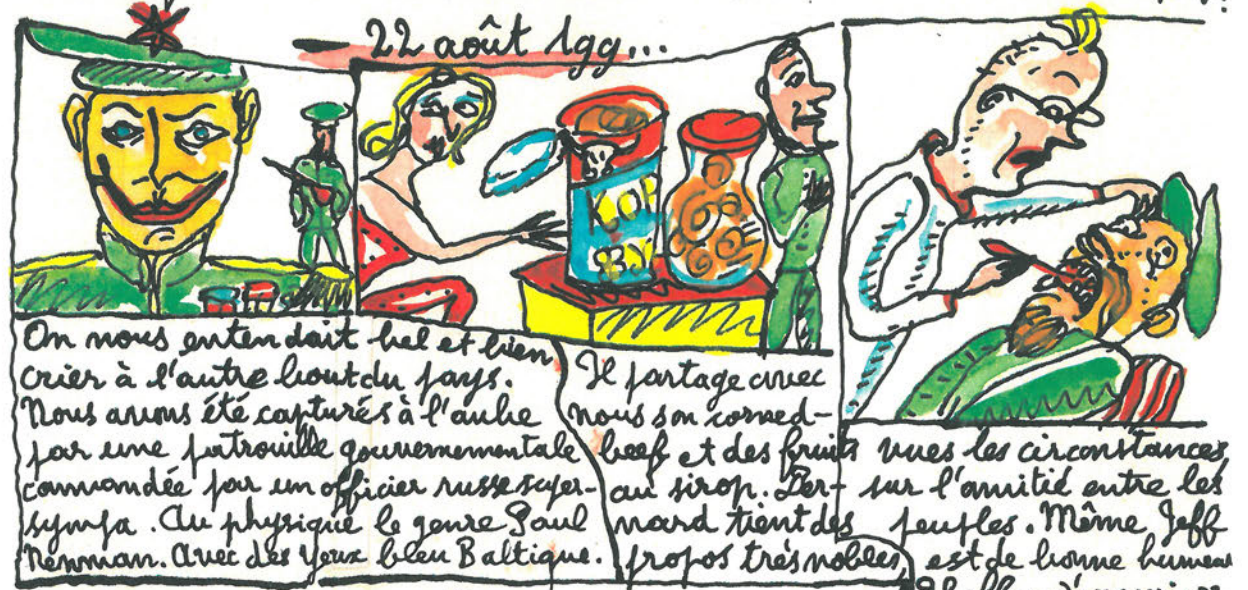 22 août 199...
KOP
BY
On nous entendait bel et bien
crier à l'autre bout du pays.
Nous avons été capturés à l'aube
par une patrouille gouvernementale
commandée par un officier russe super-
sympa. Au physique le genre Paul
Newman. Avec des yeux bleu Baltique.
Il partage avec
nous son corned-
beef et des fruits
au sirop. Ber-
nard tient des
propos très nobles,
vues les circonstances,
sur l'amitié entre les
peuples. Même Jeff
est de bonne humeur